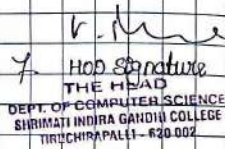 7. HOD Signature
THE HEAD
DEPT. OF COMPUTER SCIENCE
SHRIMATI INDIRA GANDHI COLLEGE
TIRUCHIRAPALLI - 620 002